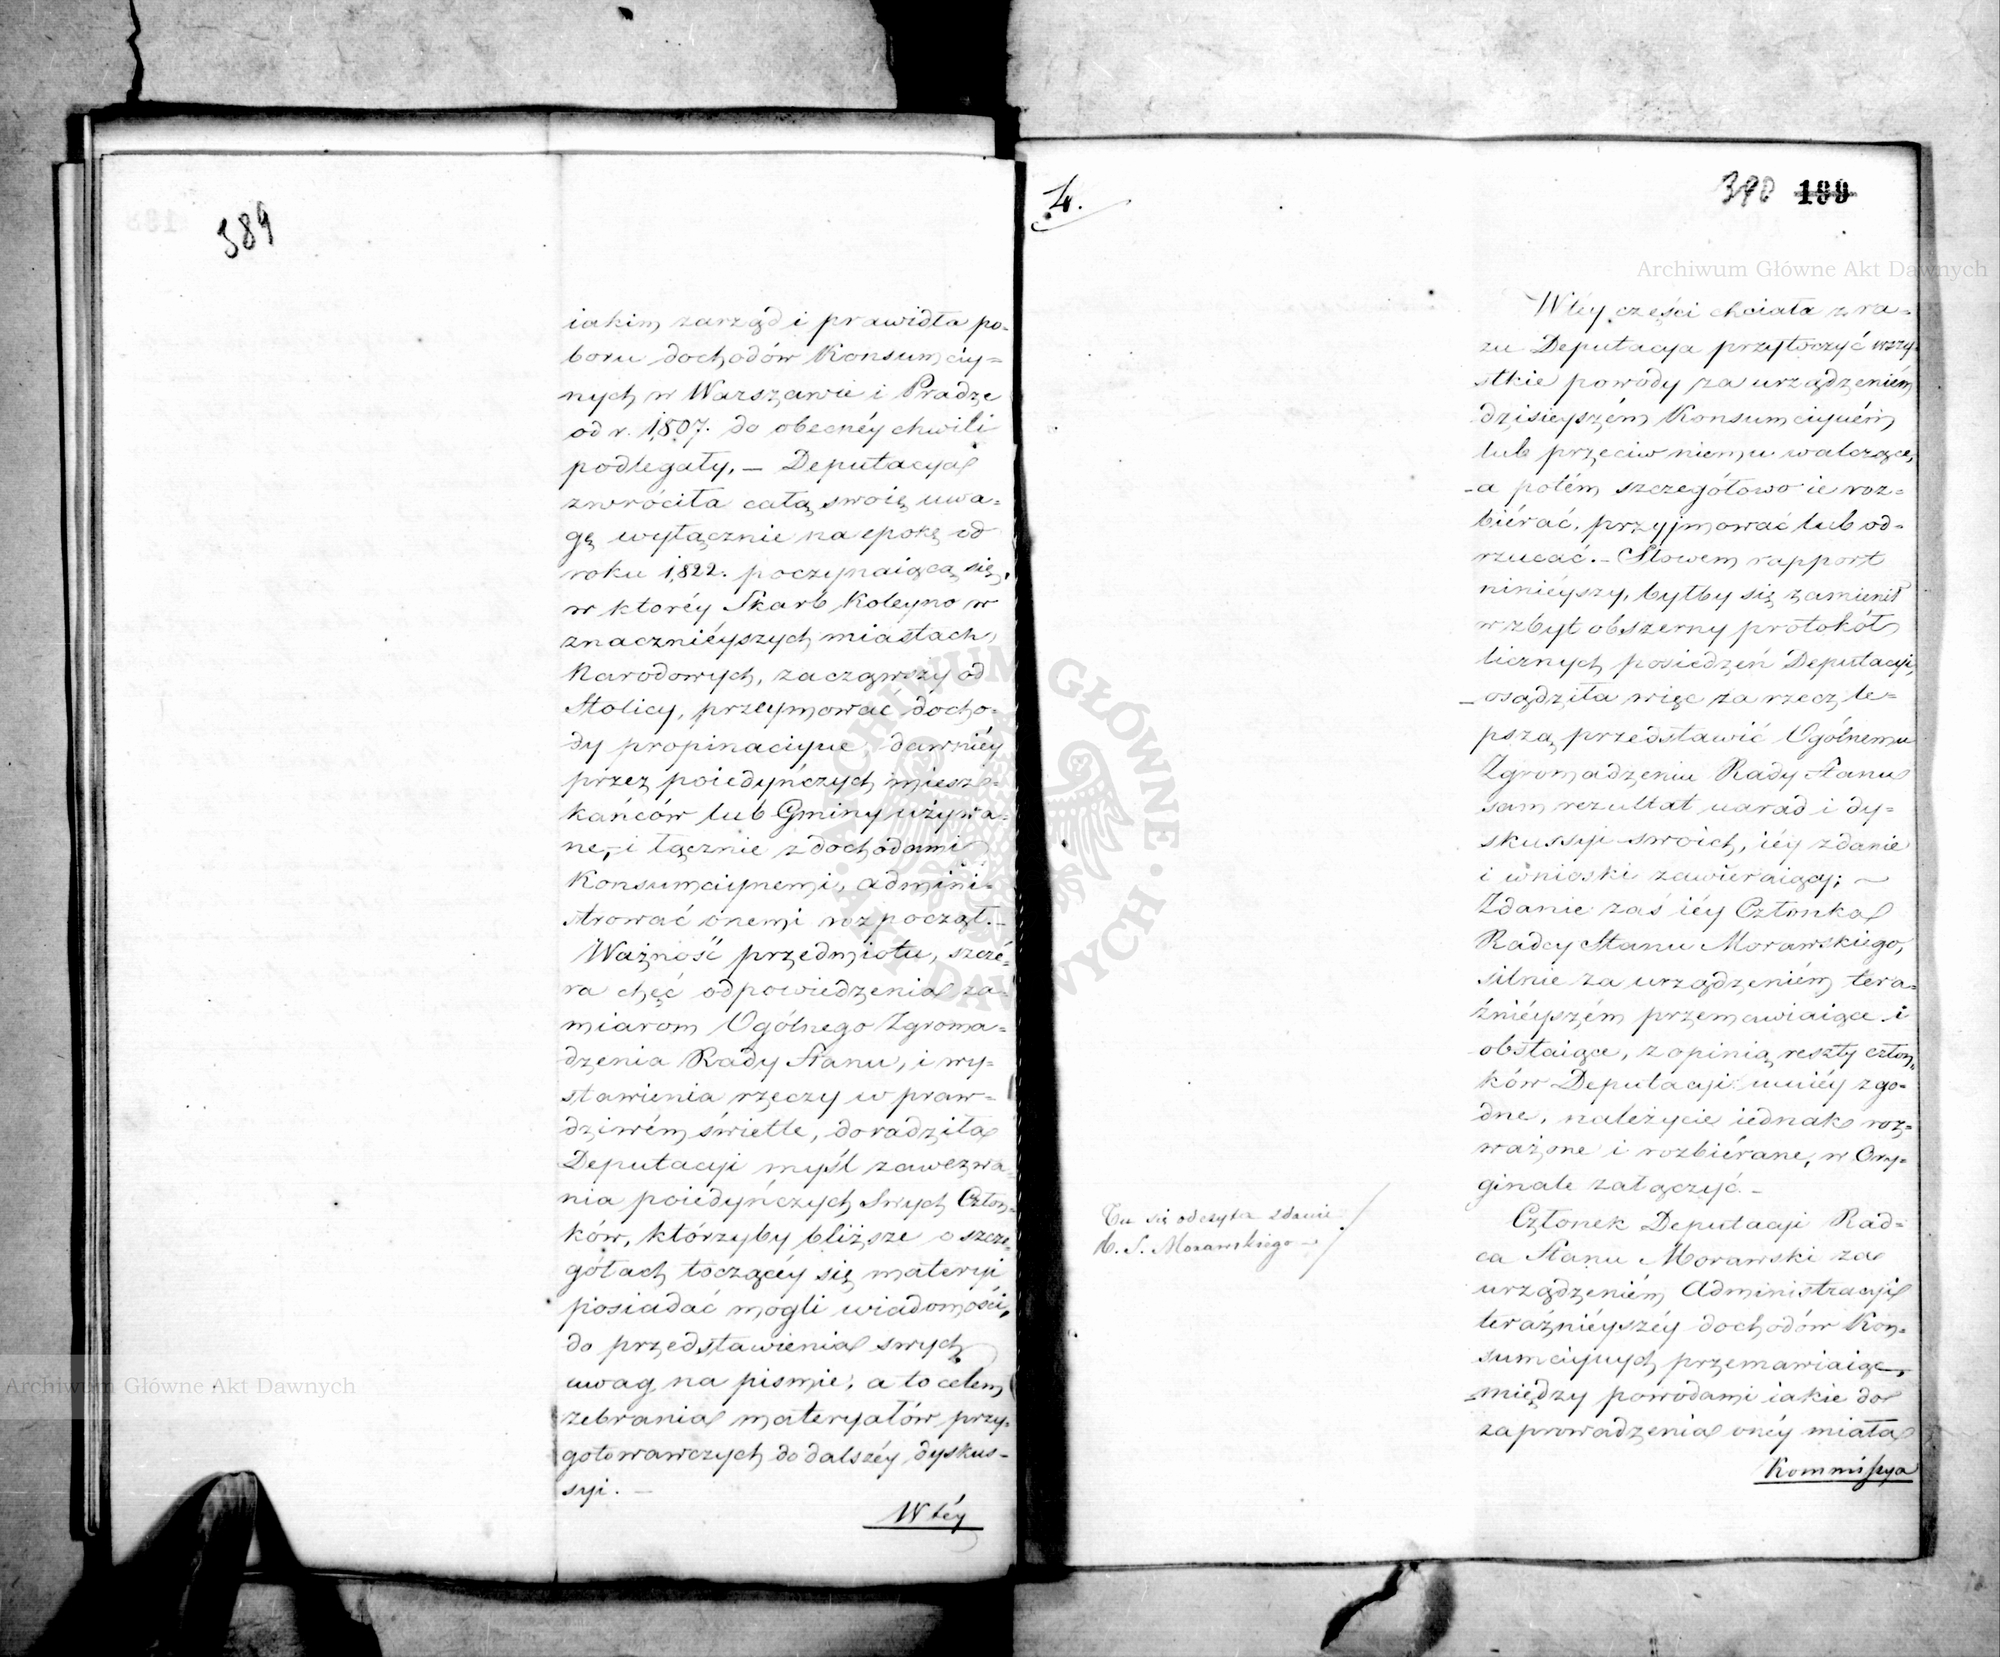 389
iakim zarząd i prawidła po-
boru dochodów Konsumcyi-
nych w Warszawie i Pradze
od r. 1807. do obecnéy chwili
podlegały, — Deputacya
zwróciła całą swoię uwa-
gę wyłącznie na epokę od
roku 1822. poczynaiącą się,
w któréy Skarb koleyno w
znacznieyszych miastach
Narodowych, zacząwszy od
Stolicy, przeymować docho-
dy propinacyine dawniéy
przez poiedyńczych miesz-
kańców lub Gminy używa-
ne, i łącznie z dochodami
Konsumcyinemi, admini-
strować onemi rozpoczął. —
Ważność przedmiotu, szcze-
ra chęć odpowiedzenia za-
miarom Ogólnego Zgroma-
dzenia Rady Stanu, i wy-
stawienia rzeczy w praw-
dziwém świetle, doradziła
Deputacyi myśl zawezwa-
nia poiedyńczych Swych Człon-
ków, którzyby bliższe o szcze-
gółach toczącéy się materyi
posiadać mogli wiadomości,
do przedstawienia swych
uwag na pismie; a to celem
zebrania materyałów przy-
gotowawczych do dalszéy dyskus-
syi. —
W téy
4.
390 199
W téy części chciała zra-
zu Deputacya przytoczyć wszy-
stkie powody za urządzeniém
dzisieyszém Konsumcyiném
lub przeciw niemu walczące,
a potém szczegółowo ie roz-
biérać, przyjmować lub od-
rzucać. — Słowem rapport
niniéyszy, byłby się zamienił
w zbyt obszerny protokół
licznych posiedzeń Deputacyi,
osądziła więc za rzecz le-
pszą przedstawić Ogólnemu
Zgromadzeniu Rady Stanu
sam rezultat narad i dy-
skussyi swoich, iéy zdanie
i wnioski zawieraiący; —
Zdanie zaś iéy Członka
Radcy Stanu Morawskiego,
silnie za urządzeniém tera-
źniéyszém przemawiaiące i
obstaiące, z opinią reszty człon-
ków Deputacyi mniéy zgo-
dne, należycie iednak roz-
ważone i rozbiérane, w Ory-
ginale załączyć. —
Tu się odczyta zdanie
R. S. Morawskiego —
Członek Deputacyi Rad-
ca Stanu Morawski za
urządzeniém Administracyi
teraźniéyszéy dochodów Kon-
sumcyinych przemawiaiąc,
między powodami iakie do
zaprowadzenia onéy miała
Kommissya
Archiwum Główne Akt Dawnych
Archiwum Główne Akt Dawnych
ARCHIWUM GŁÓWNE AKT DAWNYCH